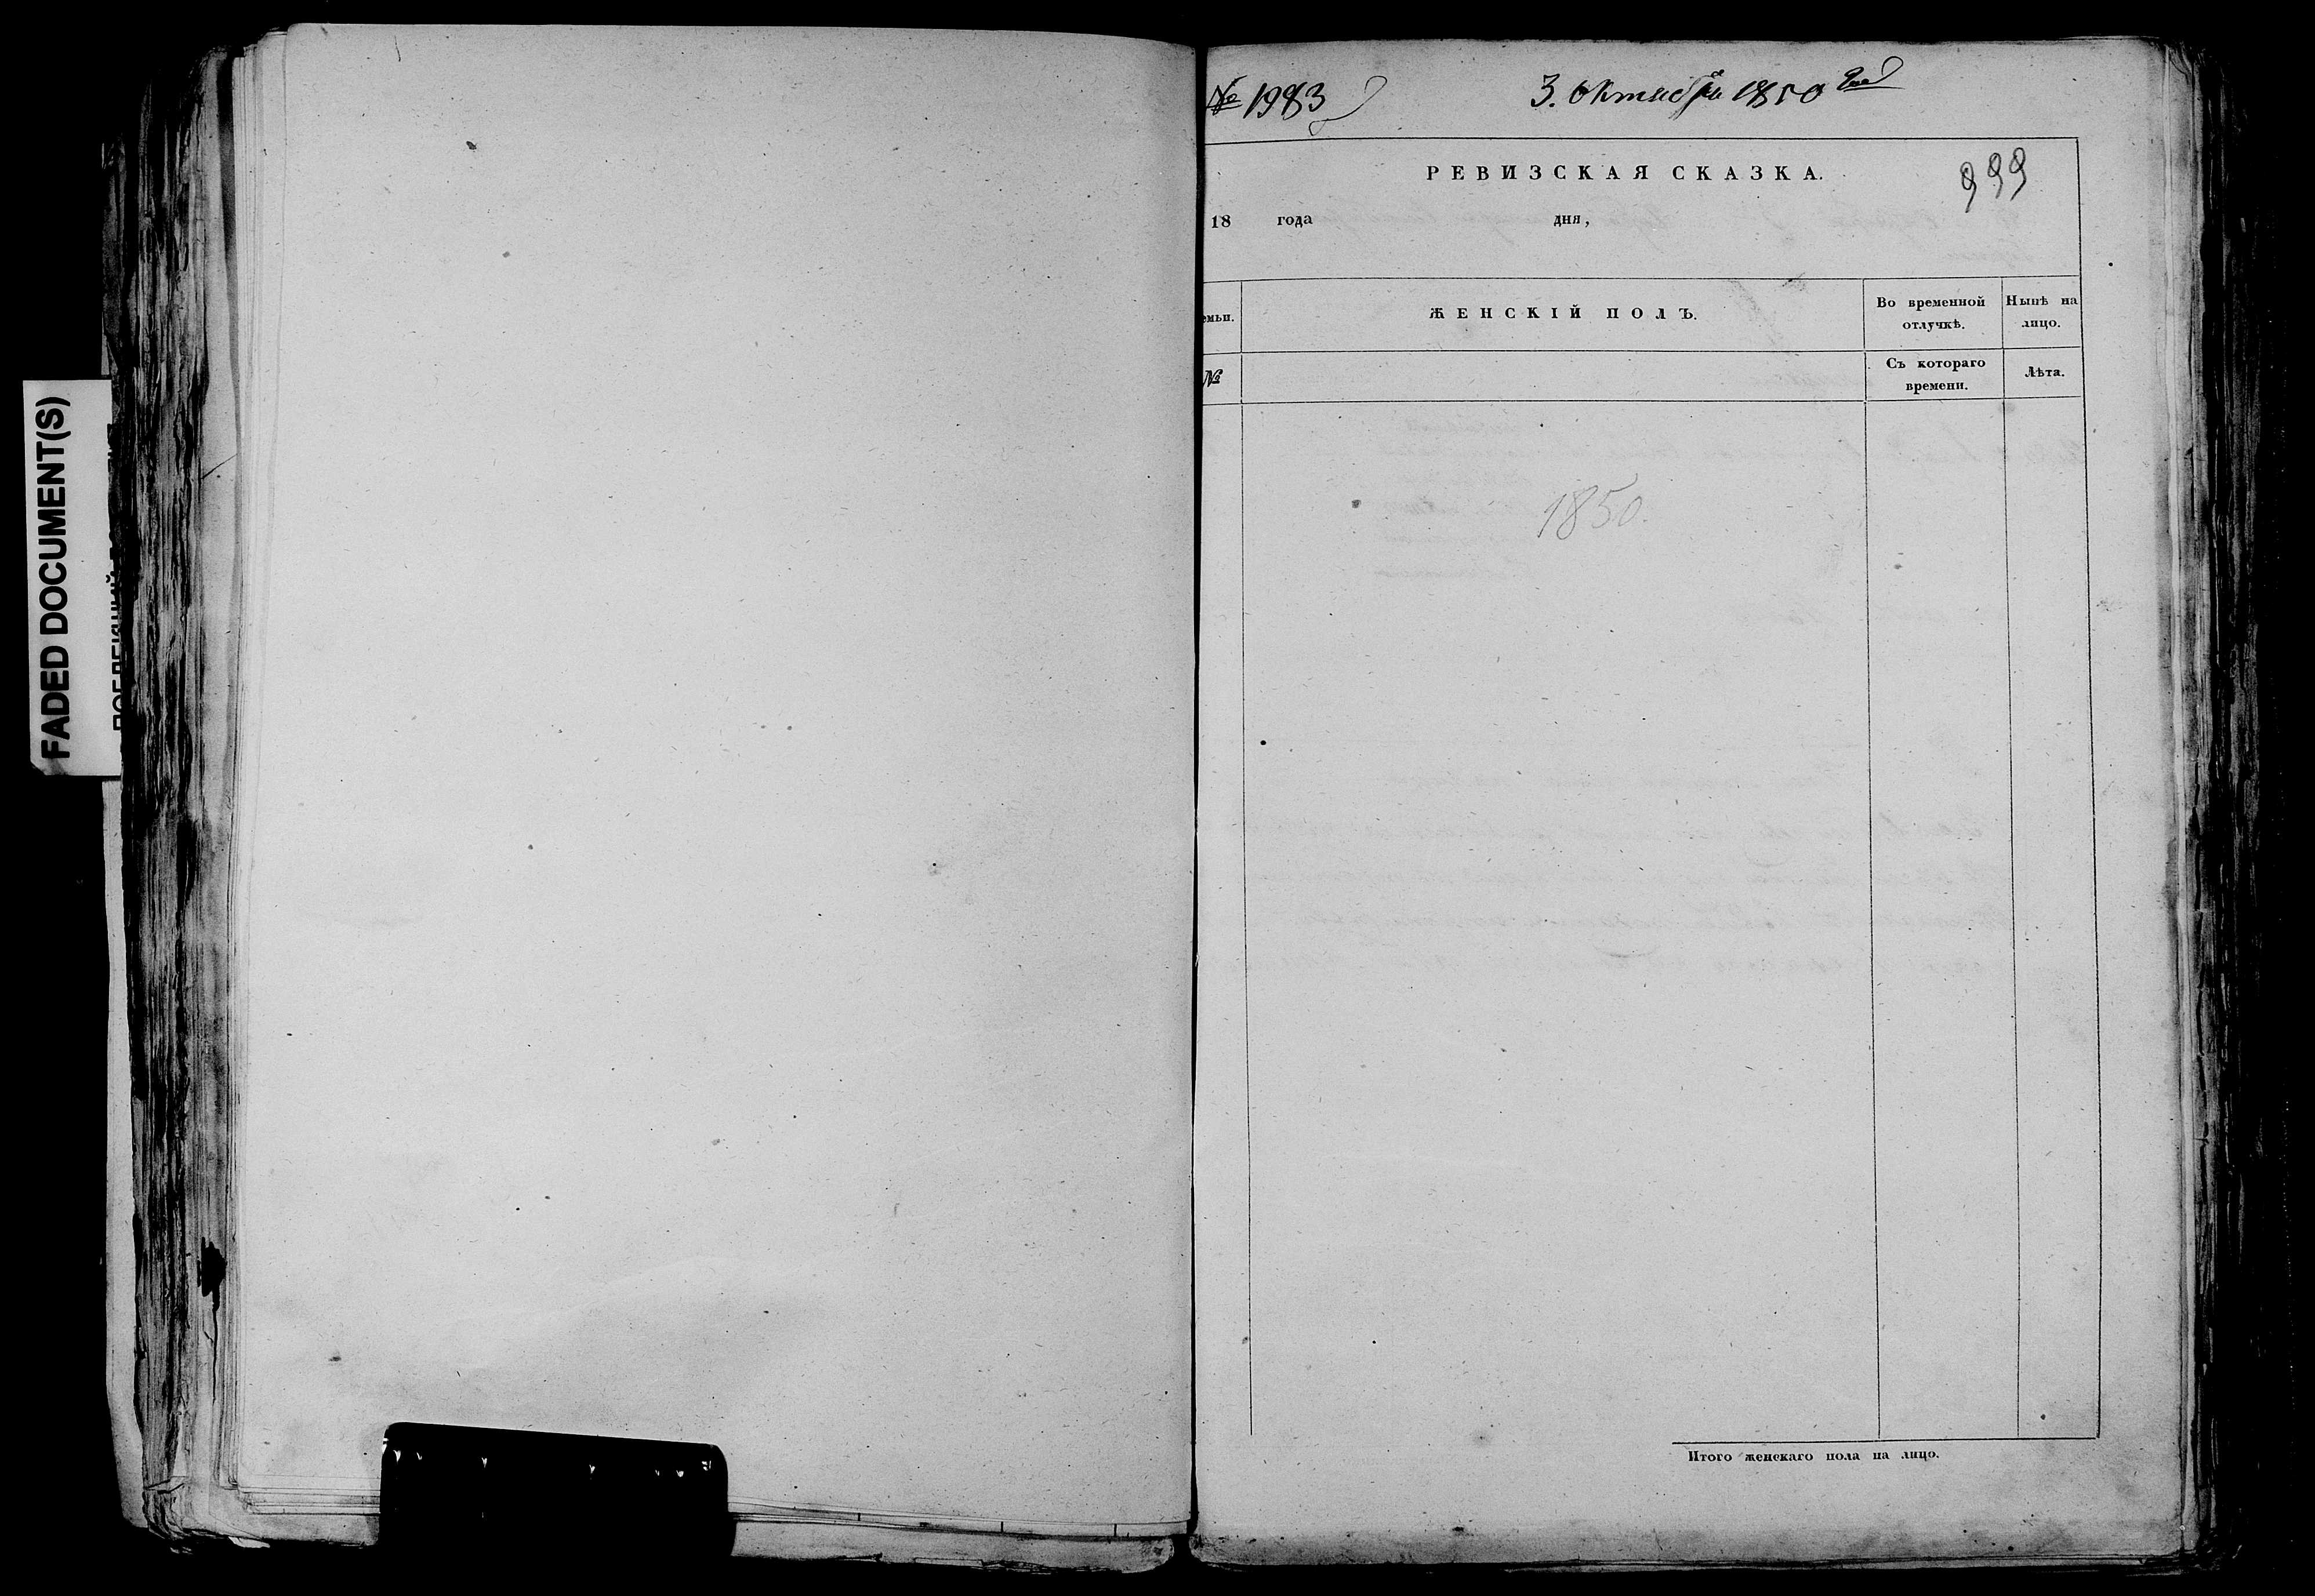 FADED DOCUMENT(S)
№ 1983
3. Октября 1850 года
РЕВИЗСКАЯ СКАЗКА.
999
18 года дня,
емьи.
ЖЕНСКІЙ ПОЛЪ.
Во временной
отлучкѣ.
Нынѣ на
лицо.
№
Съ котораго
времени.
Лѣта.
1850.
Итого женскаго пола на лицо.